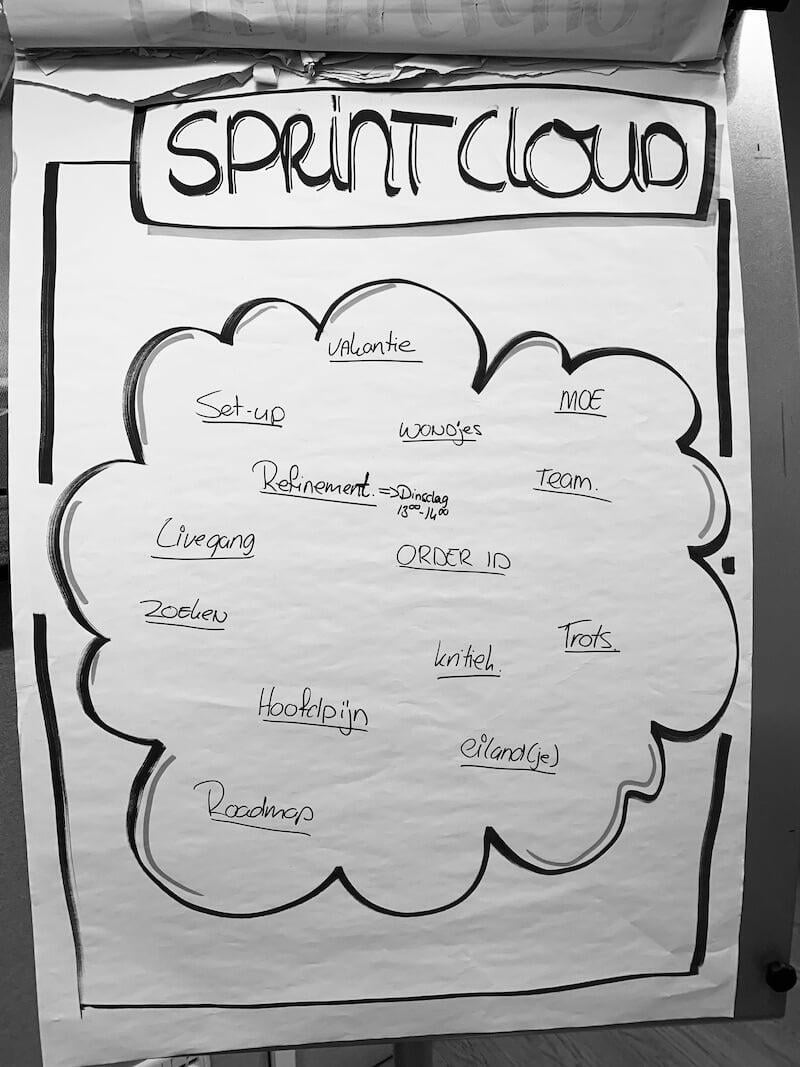 SPRINT CLOUD
vakantie
Set-up
MOE
WONDjes
Refinement. => Dinsdag
13⁰⁰-14⁰⁰
Team.
Livegang
ORDER ID
ZOEKEN
Trots.
kritiek.
Hoofdpijn
eiland(je)
Roadmap